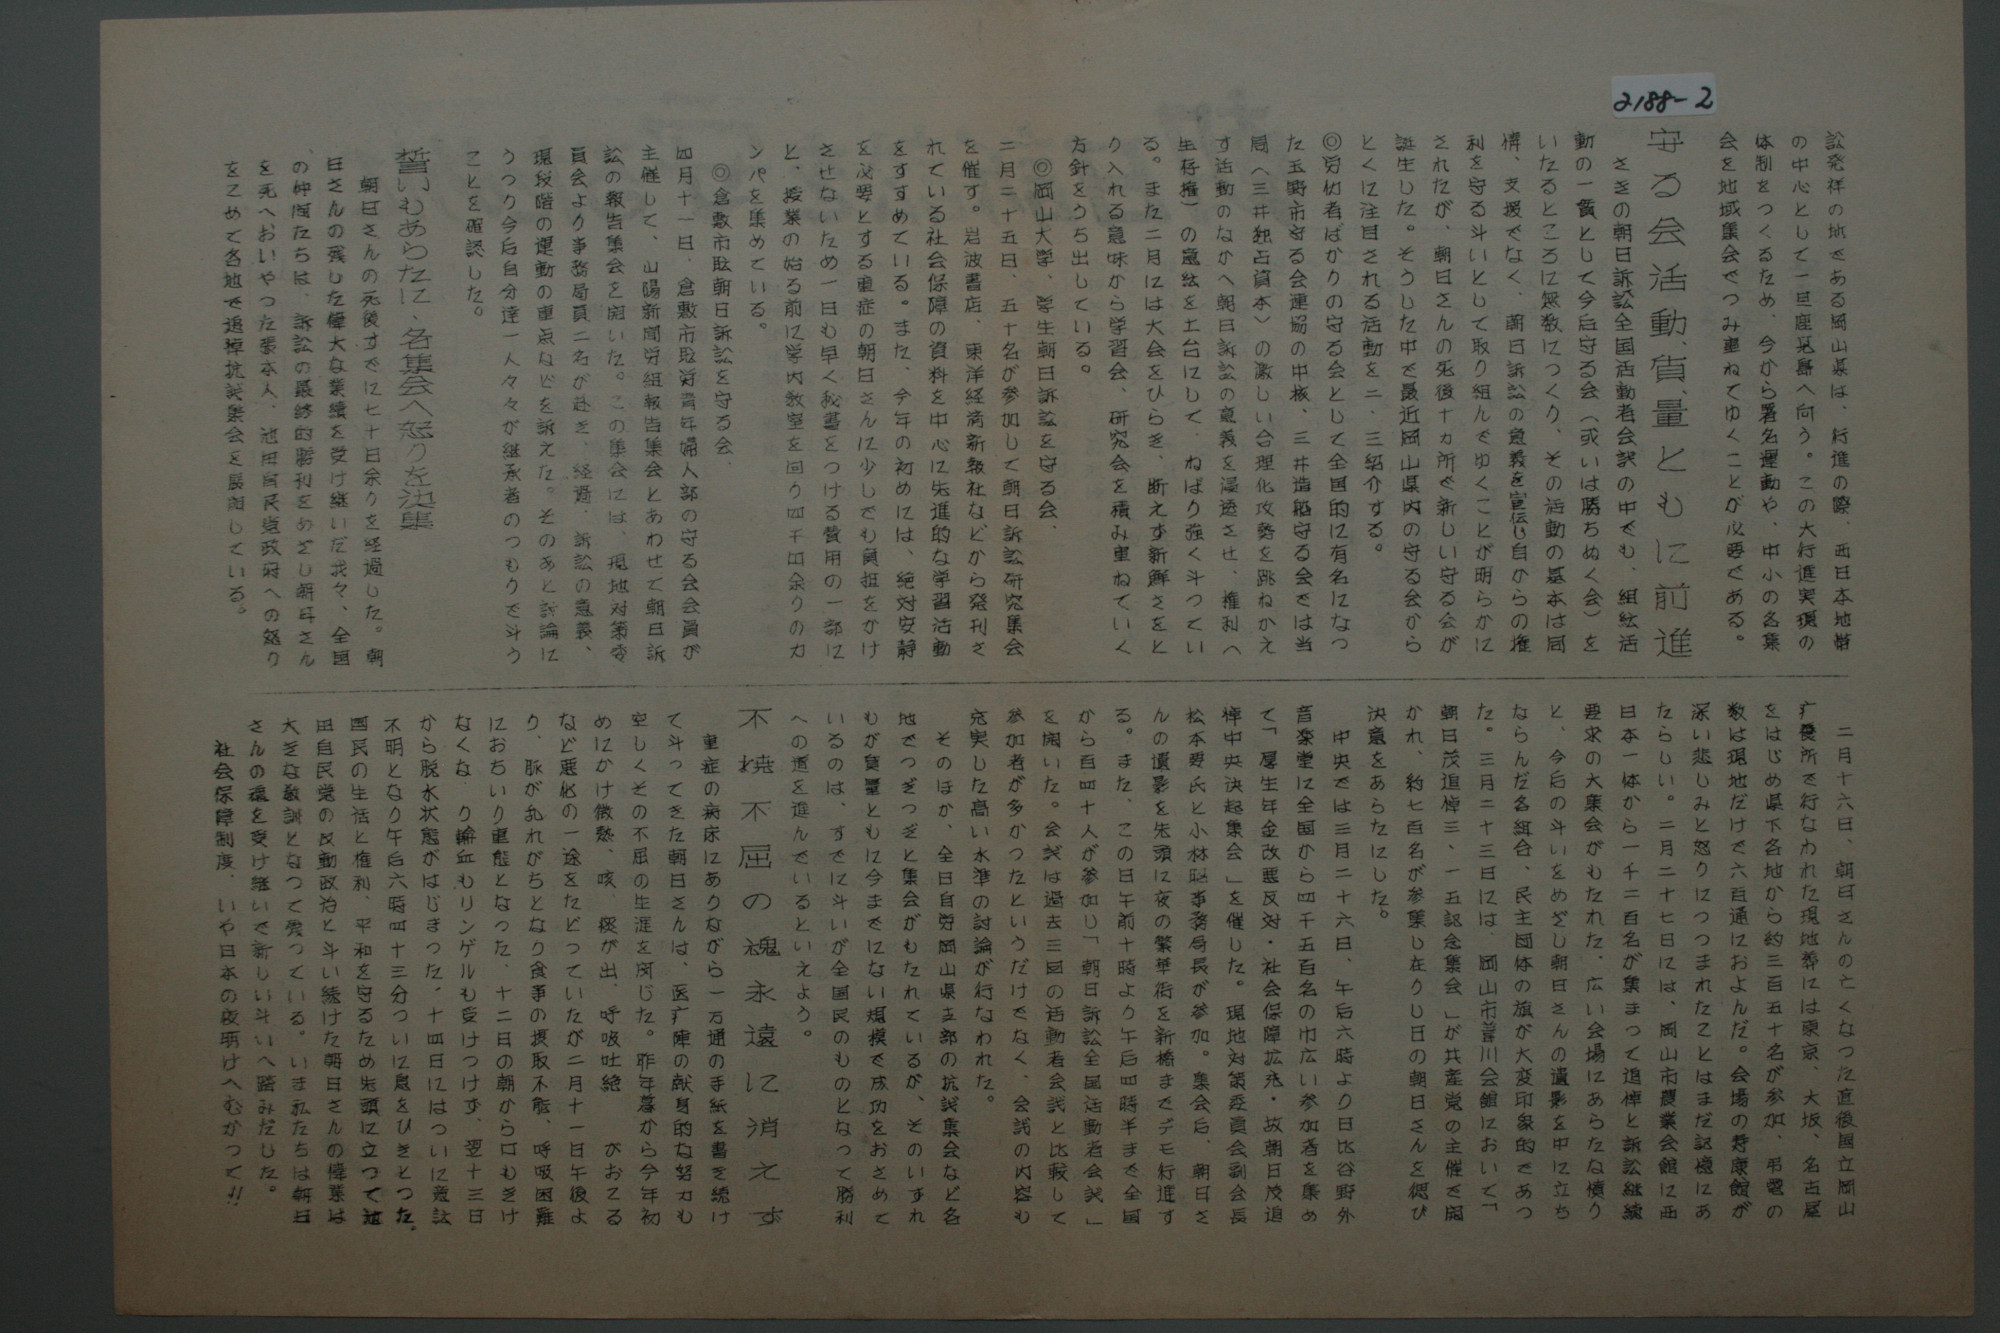 2188-2
訟発祥の地である岡山県は、行進の際、西日本地帯
の中心として一旦座見島へ向う。この大行進実現の
体制をつくるため、今から署名運動や、中小の各集
会を地域集会でつみ重ねてゆくことが必要である。
守る会活動、質、量ともに前進
さきの朝日訴訟全国活動者会議の中でも、組織活
動の一貫として今后守る会（或いは勝ちぬく会）を
いたるところに無数につくり、その活動の基本は同
情、支援でなく、朝日訴訟の意義を宣伝し自からの権
利を守る斗いとして取り組んでゆくことが明らかに
されたが、朝日さんの死後十カ所で新しい守る会が
誕生した。そうした中で最近岡山県内の守る会から
とくに注目される活動を二、三紹介する。
◎労仂者ばかりの守る会として全国的に有名になっ
た玉野市守る会連協の中核、三井造船守る会では当
局へ三井独占資本）の激しい合理化攻勢を跳ねかえ
す活動のなかへ朝日訴訟の意義を浸透させ、権利へ
生存権）の意絃を土台にして、ねばり強く斗ってい
る。また二月には大会をひらき、断えず新鮮さをと
り入れる意味から学習会、研究会を積み重ねていく
方針をうち出している。
◎岡山大学、学生朝日訴訟を守る会、
二月二十五日、五十名が参加して朝日訴訟研究集会
を催す。岩波書店、東洋経済新報社などから発刊さ
れている社会保障の資料を中心に先進的な学習活動
をすすめている。また、今年の初めには、絶対安静
を必要とする重症の朝日さんに少しでも負担をかけ
させないため一日も早く秘書をつける費用の一部に
と、授業の始る前に学内教室を回り四千四余りのカ
ンパを集めている。
◎倉敷市耺朝日訴訟を守る会、
四月十一日、倉敷市耺労青年婦人部の守る会会員が
主催して、山陽新聞労組報告集会とあわせて朝日訴
訟の報告集会を開いた。この集会には、現地対策委
員会より事務局員二名が赴き、経過、訴訟の意義、
現段階の運動の重点などを訴えた。そのあと討論に
うつり今后自分達一人々々が継承者のつもりで斗う
ことを確認した。
誓いもあらたに、各集会へ怒りを決集
朝日さんの死後すでに七十日余りを経過した。朝
日さんの残した偉大な業績を受け継いだ我々、全国
の仲間たちは、訴訟の最終的勝利をめざし朝日さん
を死へおいやった張本人、池田自民党政府への怒り
をこめて各地で追悼抗議集会を展開している。
二月十六日、朝日さんの亡くなった直後国立岡山
疗養所で行なわれた現地葬には東京、大坂、名古屋
をはじめ県下各地から約三百五十名が参加、弔電の
数は現地だけで六百通におよんだ。会場の寿康館が
深い悲しみと怒りにつつまれたことはまだ記憶にあ
たらしい。二月二十七日には、岡山市農業会館に西
日本一体から一千二百名が集まって追悼と訴訟継続
要求の大集会がもたれた、広い会場にあらたな憤り
と、今后の斗いをめざし朝日さんの遺影を中に立ち
ならんだ各組合、民主団体の旗が大変印象的であっ
た。三月二十三日には、岡山市善川会館において「
朝日茂追悼三、一五記念集会」が共産党の主催で開
かれ、約七百名が参集し在りし日の朝日さんを偲び
決意をあらたにした。
中央では三月二十六日、午后六時より日比谷野外
音楽堂に全国から四千五百名の巾広い参加者を集め
て「厚生年金改悪反対・社会保障拡充・故朝日茂追
悼中央決起集会」を催した。現地対策委員会副会長
松本要氏と小林聡事務局長が参加。集会后、朝日さ
んの遺影を先頭に夜の繁華街を新橋までデモ行進す
る。また、この日午前十時より午后四時半まで全国
から百四十人が参加し「朝日訴訟全国活動者会議」
を開いた。会議は過去三回の活動者会議と比較して
参加者が多かったというだけでなく、会議の内容も
充実した高い水準の討論が行なわれた。
そのほか、全日自労岡山県支部の抗議集会など各
地でつぎつぎと集会がもたれているが、そのいずれ
もが質量ともに今までにない規模で成功をおさめて
いるのは、すでに斗いが全国民のものとなって勝利
への道を進んでいるといえよう。
不焼不屈の魂永遠に消えず
重症の病床にありながら一万通の手紙を書き続け
て斗ってきた朝日さんは、医疗陣の献身的な努力も
空しくその不屈の生涯を閉じた。昨年暮から今年初
めにかけ微熱、咳、痰が出、呼吸吐絶 がおこる
など悪化の一途をたどっていたが二月十一日午後よ
り、脈が乱れがちとなり食事の摂取不能、呼吸困難
におちいり重態となった、十二日の朝から口もきけ
なくな り輸血もリンゲルも受けつけず、翌十三日
から脱水状態がはじまった、十四日にはついに意識
不明となり午后六時四十三分ついに息をひきとった。
国民の生活と権利、平和を守るため先頭に立って池
田自民党の反動政治と斗い続けた朝日さんの偉業は
大きな教訓となって残っている。いま私たちは朝日
さんの魂を受け継いで新しい斗いへ踏みだした。
社会保障制度、いや日本の夜明けへむかって!!